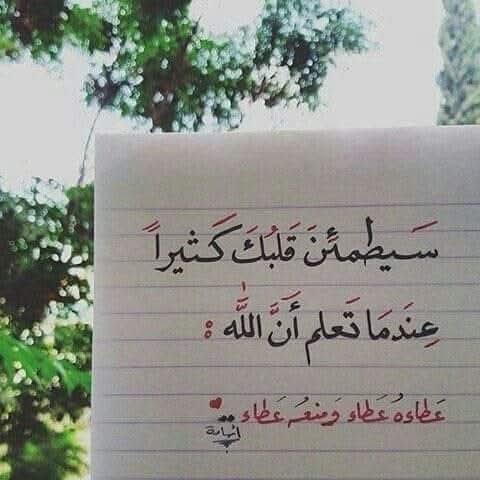 سَيَطمئِنَ قَلبُكَ كَثيراً
عِندَمَا تَعلم أنَّ اللَّه :
عَطاءهُ عَطاء وَمنعُه عَطاء